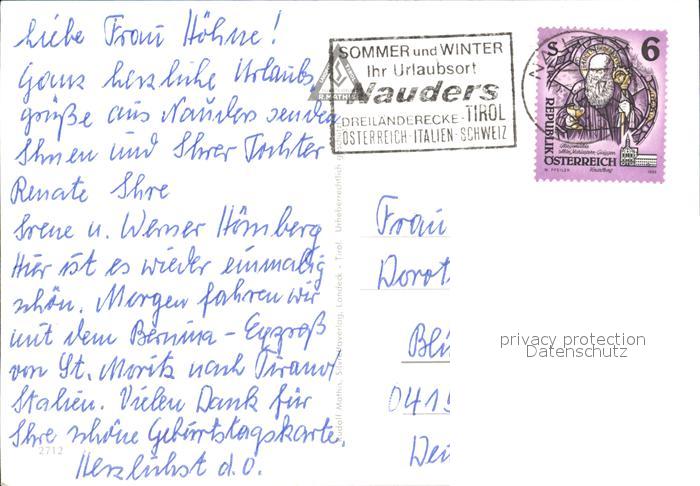 Liebe Frau Höhne!
Ganz herzliche Urlaubs-
grüße aus Nauders senden
Ihnen und Ihrer Tochter
Renate Ihre
Irene u. Werner Hömberg
Hier ist es wieder einmalig
schön. Morgen fahren wir
mit dem Bernina-Expreß
von St. Moritz nach Tirano/
Italien. Vielen Dank für
Ihre schöne Geburtstagskarte.
Herzlichst d.O.
2712
Rudolf Mathis, Landeck - Tirol. Urheberrechtlich
SOMMER und WINTER
Ihr Urlaubsort
Nauders
DREILÄNDERECKE · TIROL
ÖSTERREICH · ITALIEN · SCHWEIZ
S 6
REPUBLIK
ÖSTERREICH
Frau
Dorot
Blü
041
Wei
privacy protection
Datenschutz